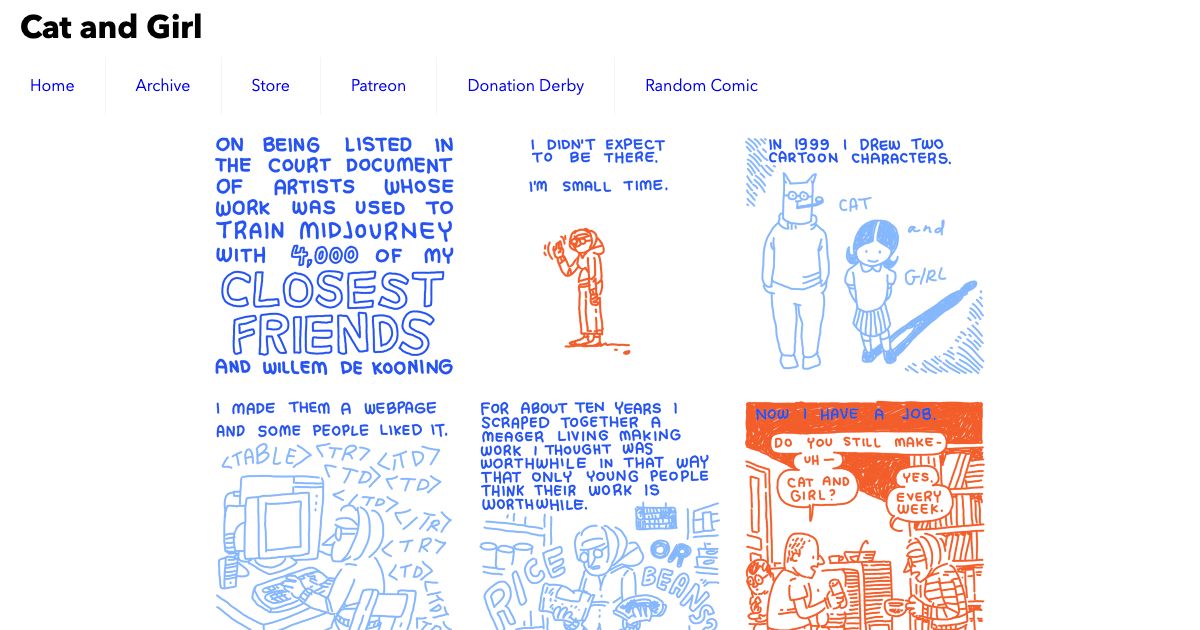 Cat and Girl
Home
Archive
Store
Patreon
Donation Derby
Random Comic
ON BEING LISTED IN
THE COURT DOCUMENT
OF ARTISTS WHOSE
WORK WAS USED TO
TRAIN MIDJOURNEY
WITH 4,000 OF MY
CLOSEST
FRIENDS
AND WILLEM DE KOONING
I DIDN'T EXPECT
TO BE THERE.
I'M SMALL TIME.
IN 1999 I DREW TWO
CARTOON CHARACTERS.
CAT
and
GIRL
I MADE THEM A WEBPAGE
AND SOME PEOPLE LIKED IT.
<TABLE> <TR> </TD>
<TD> <TD>
</TD>
</TR>
<TR>
<TD>
FOR ABOUT TEN YEARS I
SCRAPED TOGETHER A
MEAGER LIVING MAKING
WORK I THOUGHT WAS
WORTHWHILE IN THAT WAY
THAT ONLY YOUNG PEOPLE
THINK THEIR WORK IS
WORTHWHILE.
RICE
OR
BEANS
NOW I HAVE A JOB.
DO YOU STILL MAKE-
UH—
CAT AND
GIRL?
YES.
EVERY
WEEK.